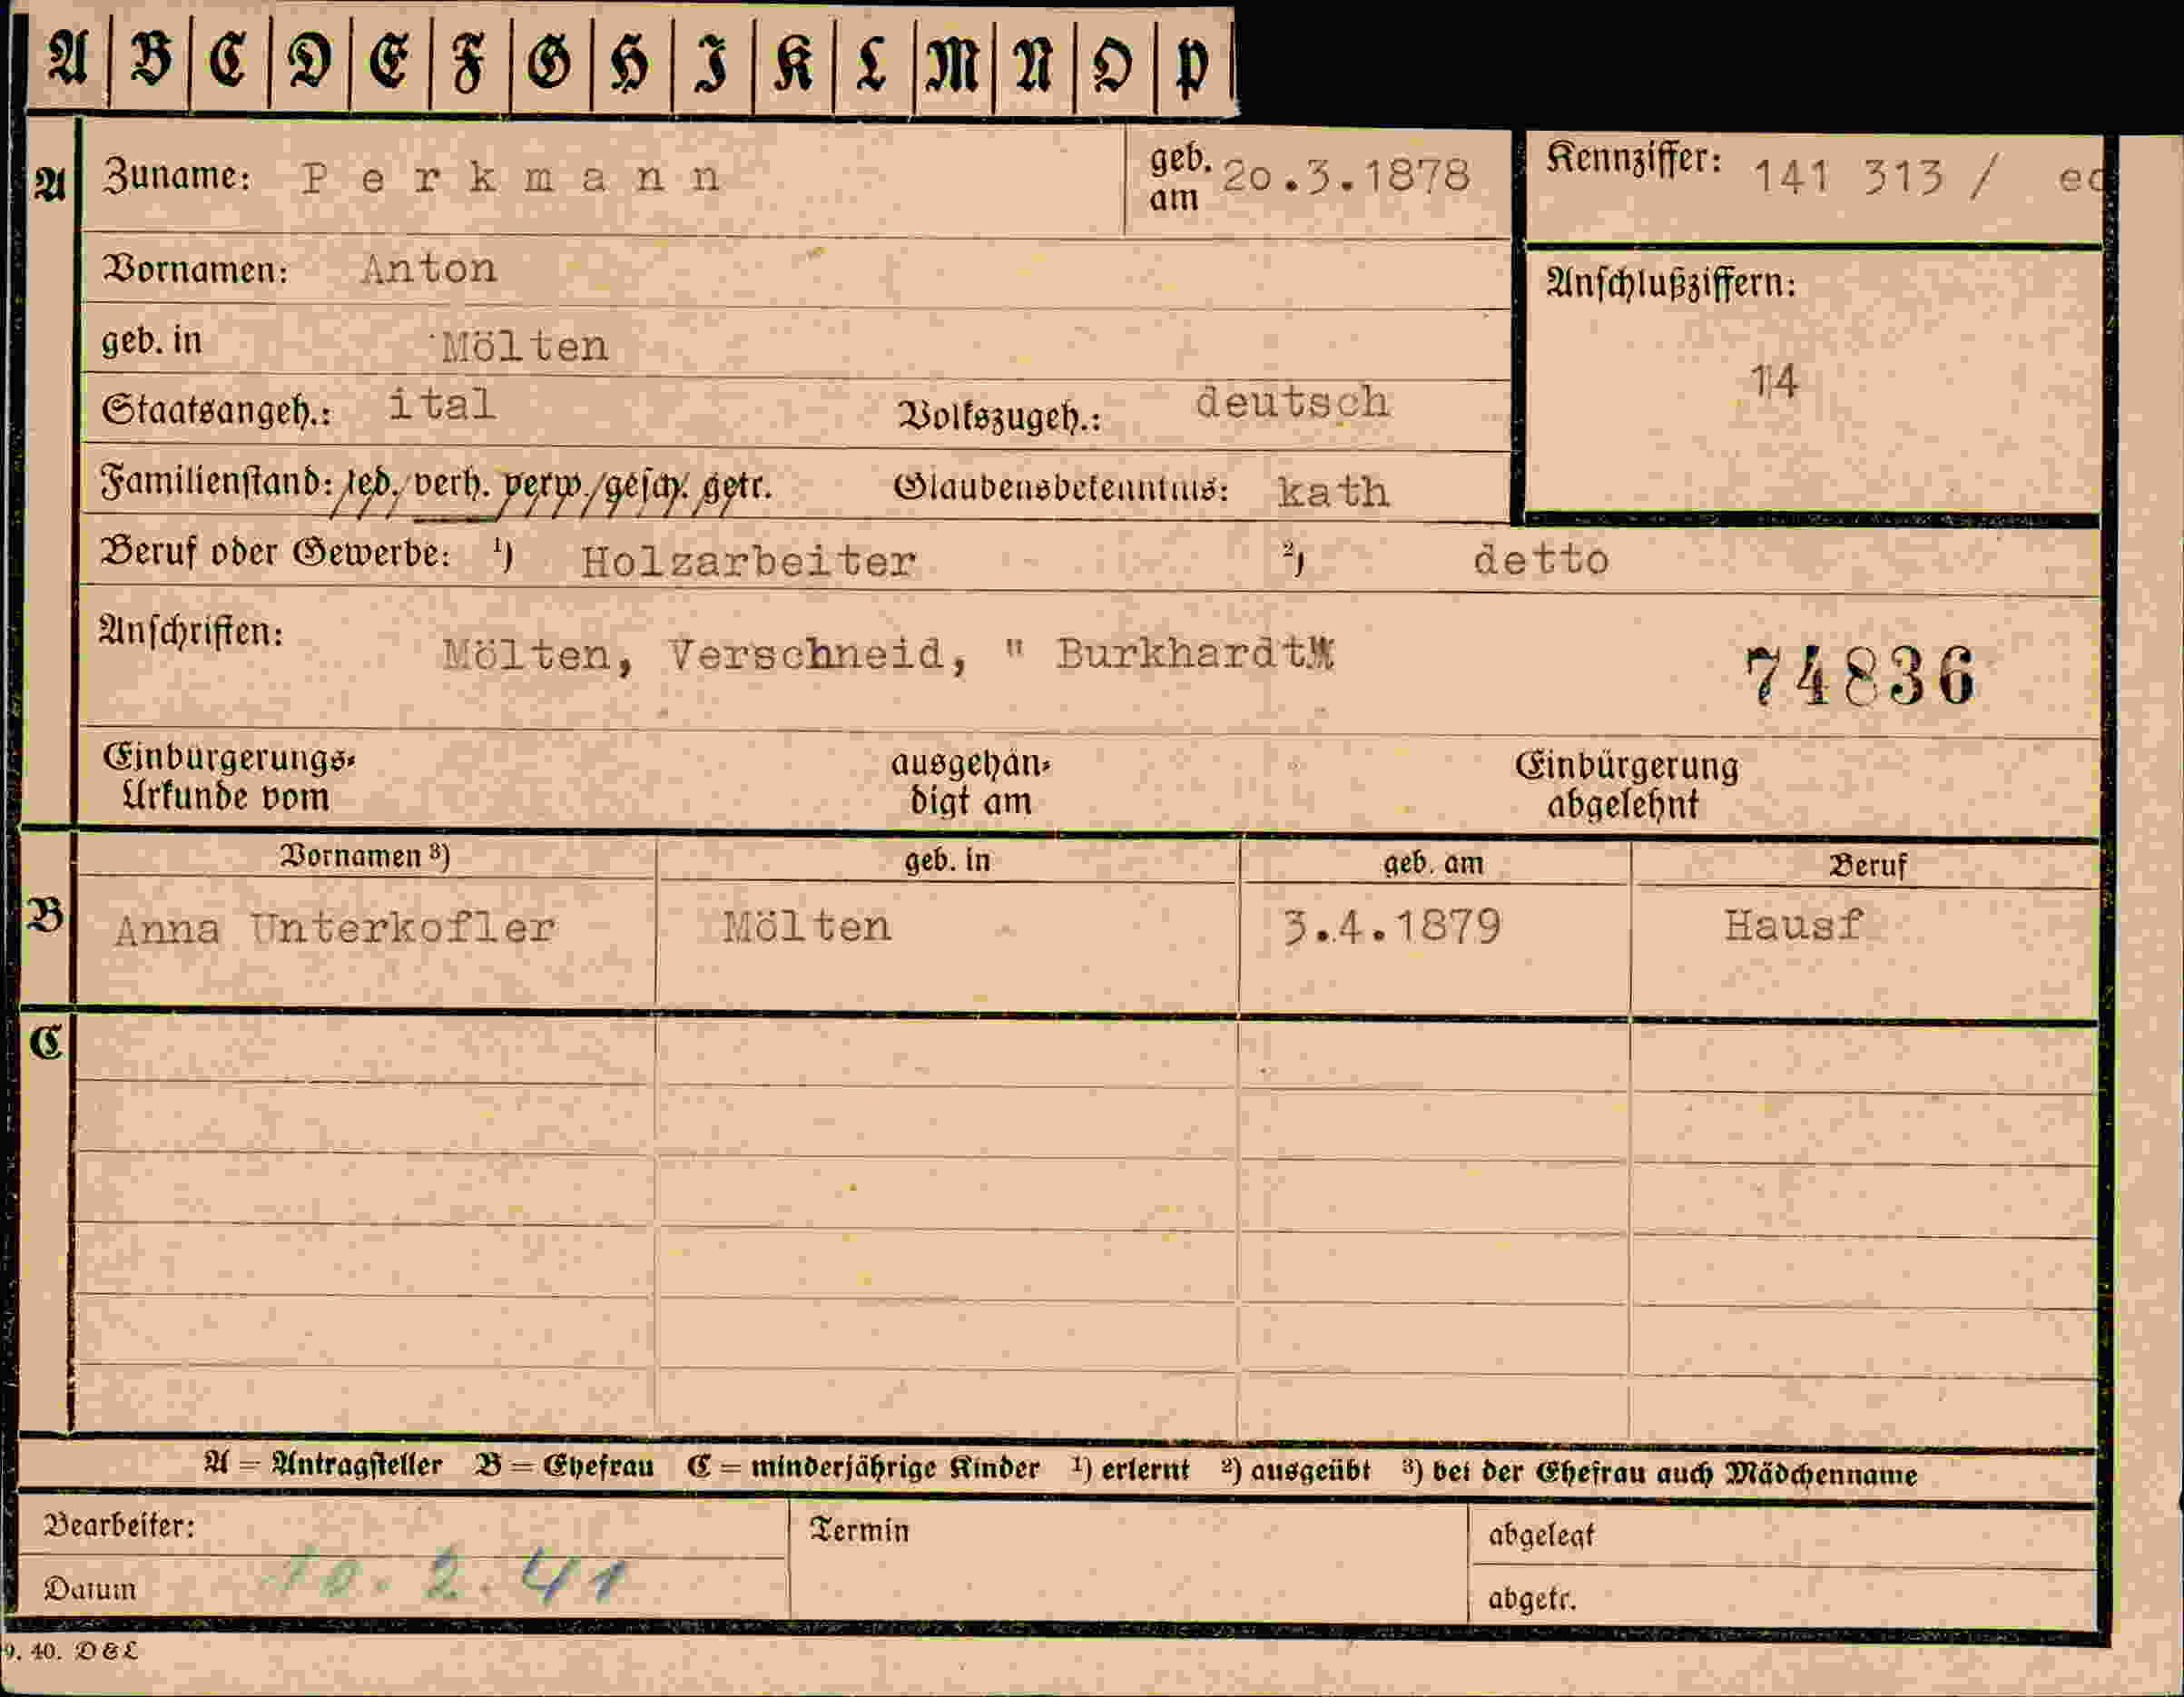 A B C D E F G H I K L M N O P
A Zuname: Perkmann geb. am 20.3.1878 Kennziffer: 141 313 / ec
Vornamen: Anton
Anschlußziffern:
geb. in Mölten
14
Staatsangeh.: ital Volkszugeh.: deutsch
Familienstand: led. verh. verw. gesch. getr. Glaubensbekenntnis: kath
Beruf oder Gewerbe: ¹) Holzarbeiter ²) detto
Anschriften: Mölten, Verschneid, " Burkhardt"
74836
Einbürgerungs-Urkunde vom ausgehändigt am Einbürgerung abgelehnt
Vornamen ³) geb. in geb. am Beruf
B Anna Unterkofler Mölten 3.4.1879 Hausf
C
A = Antragsteller B = Ehefrau C = minderjährige Kinder ¹) erlernt ²) ausgeübt ³) bei der Ehefrau auch Mädchenname
Bearbeiter: Termin abgelegt
Datum 10.2.41 abgetr.
9. 40. D&L